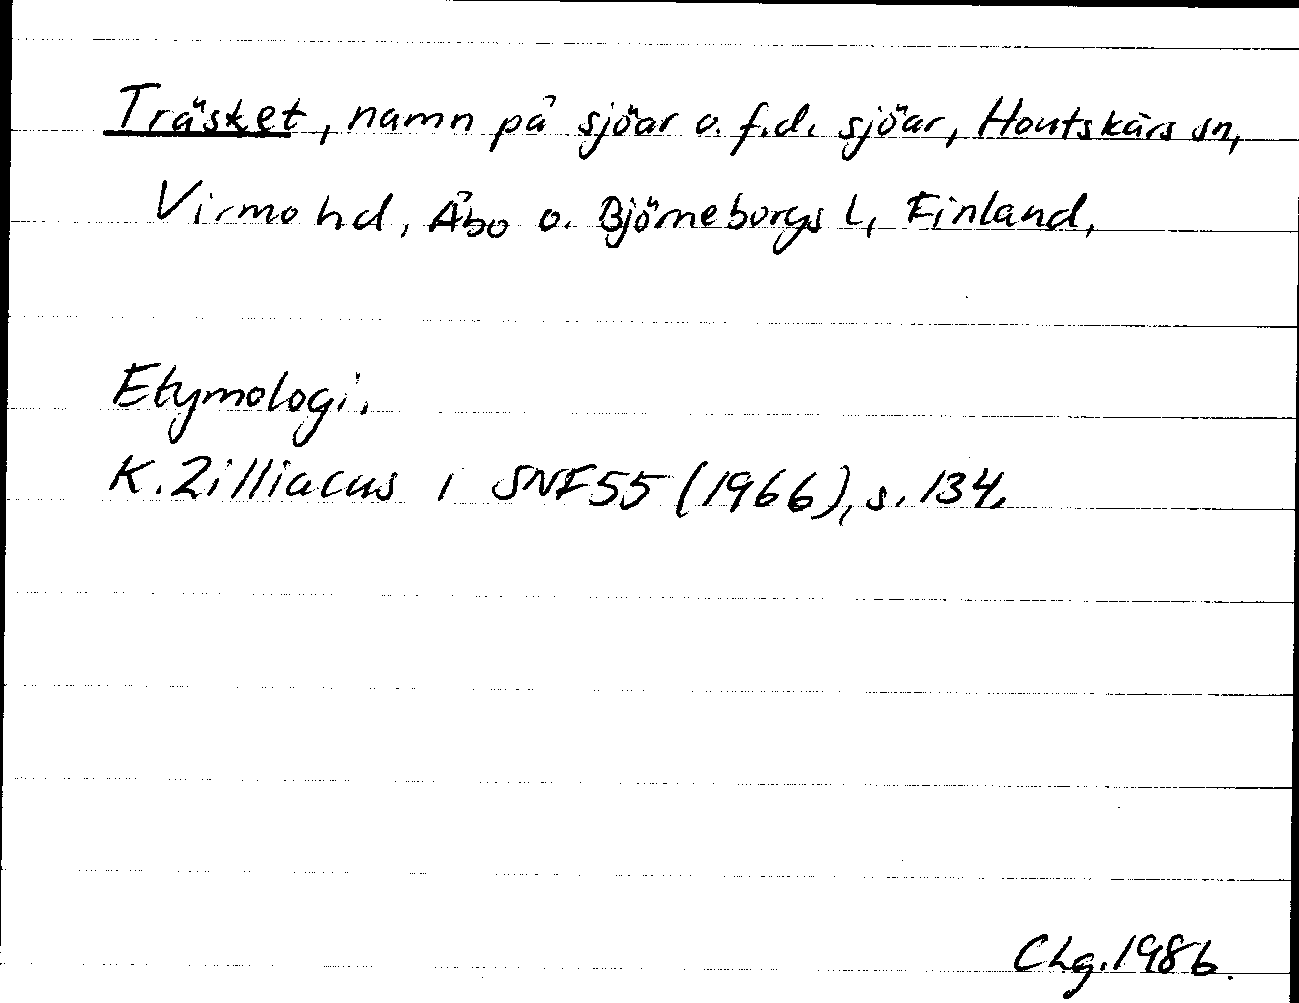 Träsket, namn på sjöar o. f.d. sjöar, Houtskärs sn,
Virmo hd, Åbo o. Björneborgs l, Finland,
Etymologi.
K. Zilliacus i SNF 55 (1966), s. 134.
CLg. 1986.